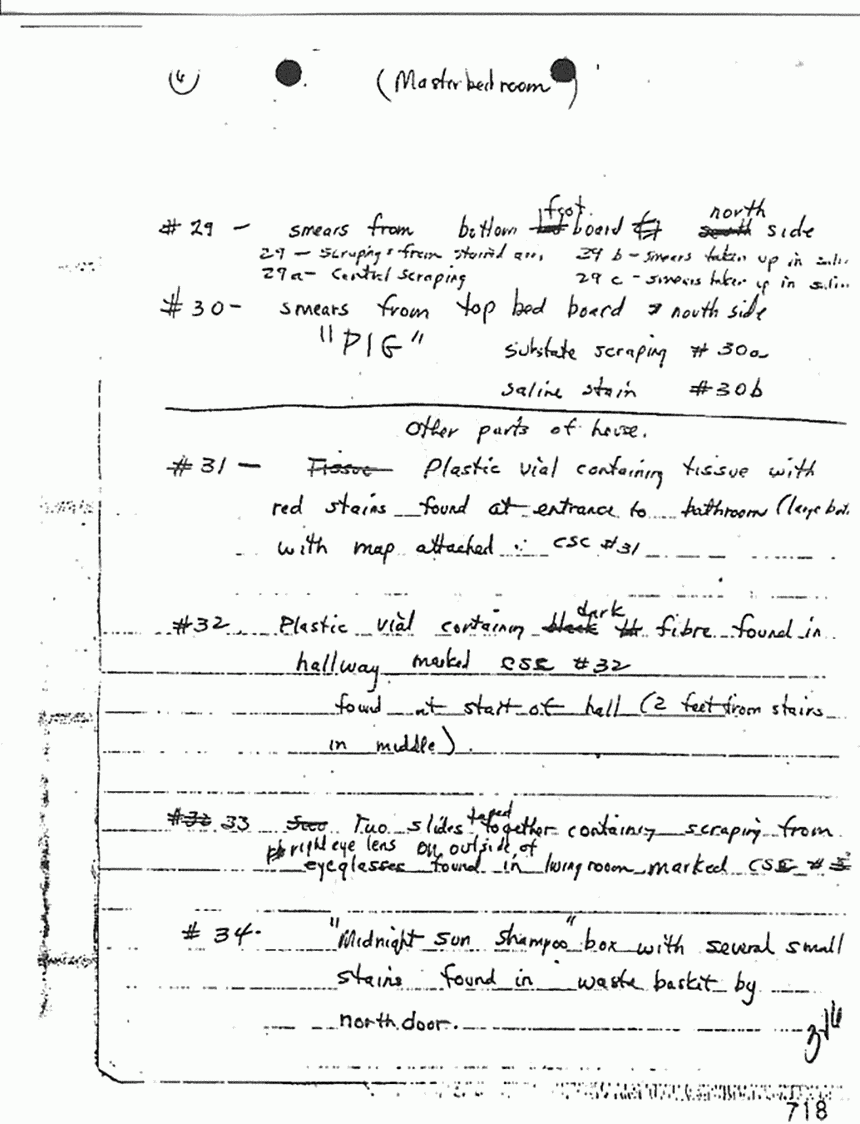 (6) (Master bedroom)
foot north
#29 - smears from bottom board side
29 - scrapings from stained area 29 b - smears taken up in saline
29a - Control scraping 29 c - smears taken up in saline
#30 - smears from top bed board north side
"PIG" substate scraping #30a
saline stain #30b
Other parts of house.
#31 - Tissue Plastic vial containing tissue with
red stains found at entrance to bathroom (large
with map attached CSC #31
dark
#32 Plastic vial containing black fibre found in
hallway marked CSC #32
found at start of hall (2 feet from stairs
in middle).
taped
#32 33 Two slides together containing scraping from
right eye lens on outside of
eyeglasses found in living room marked CSC #
#34. "Midnight sun shampoo" box with several small
stains found in waste baskit by
north door.
718